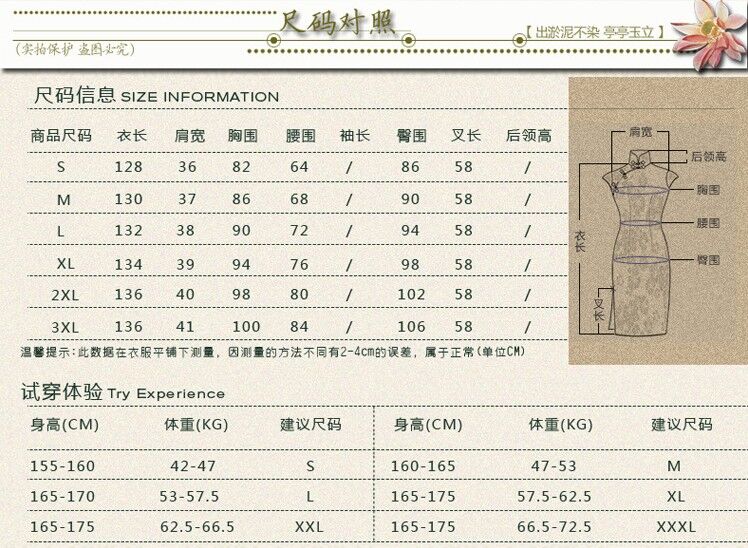 尺码对照
(实拍保护 盗图必究)
【 出淤泥不染 亭亭玉立 】
尺码信息 SIZE INFORMATION
商品尺码 衣长 肩宽 胸围 腰围 袖长 臀围 叉长 后领高
S 128 36 82 64 / 86 58 /
M 130 37 86 68 / 90 58 /
L 132 38 90 72 / 94 58 /
XL 134 39 94 76 / 98 58 /
2XL 136 40 98 80 / 102 58 /
3XL 136 41 100 84 / 106 58 /
温馨提示:此数据在衣服平铺下测量，因测量的方法不同有2-4cm的误差，属于正常(单位CM)
肩宽
后领高
胸围
腰围
衣长
臀围
叉长
试穿体验 Try Experience
身高(CM) 体重(KG) 建议尺码 身高(CM) 体重(KG) 建议尺码
155-160 42-47 S 160-165 47-53 M
165-170 53-57.5 L 165-175 57.5-62.5 XL
165-175 62.5-66.5 XXL 165-175 66.5-72.5 XXXL